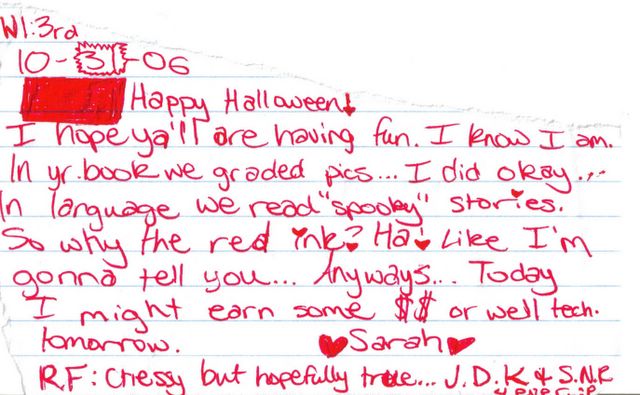 W1:3rd
10-31-06
Happy Halloween!
I hope ya'll are having fun. I know I am.
In yr.book we graded pics... I did okay...
In language we read "spooky" stories.
So why the red ink? Ha! Like I'm
gonna tell you... Anyways... Today
I might earn some $$ or well tech.
tomorrow. ♥Sarah♥
R.F: Chessy but hopefully true... J.D.K & S.N.R